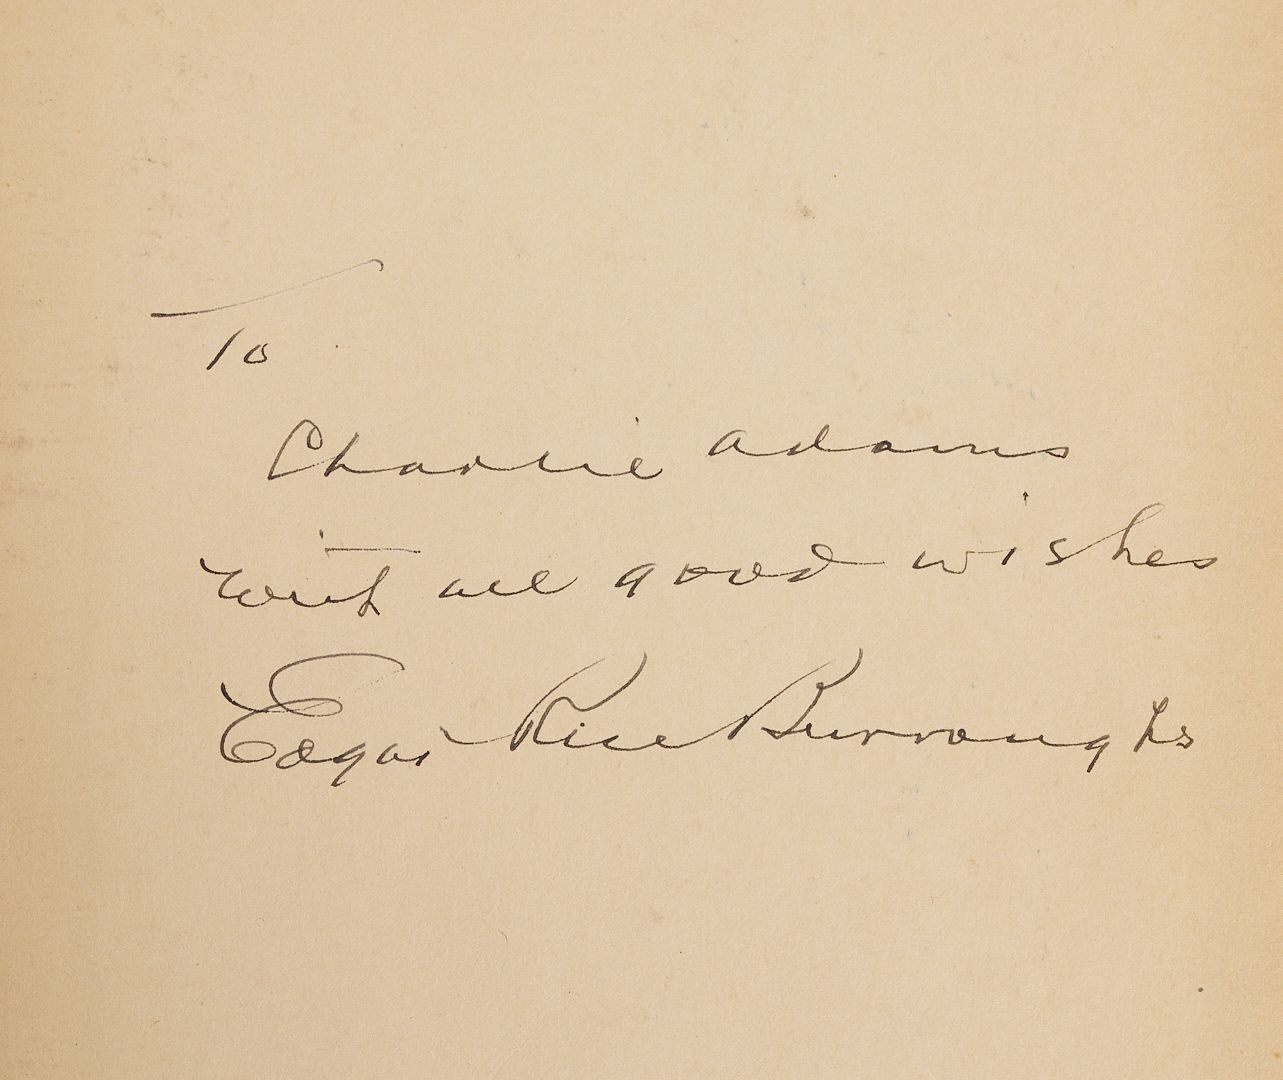 To
Charlie Adams
with all good wishes
Edgar Rice Burroughs